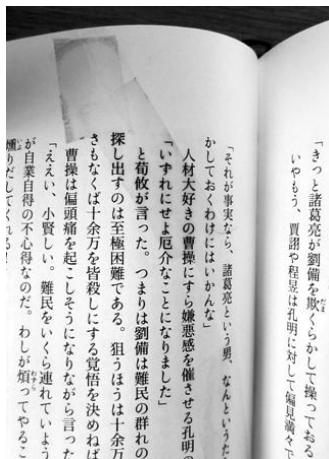 「きっと諸葛亮が劉備を欺くらかして操っておる
いやもう、賈詡や程昱は孔明に対して偏見満々で
「それが事実なら、諸葛亮という男、なんというた
かしておくわけにはいかんな」
人材大好きの曹操にすら嫌悪感を催させる孔明の
「いずれにせよ厄介なことになりました」
と荀攸が言った。つまりは劉備は難民の群れの
探し出すのは至極困難である。狙うほうは十余万
さもなくば十余万を皆殺しにする覚悟を決めねば
曹操は偏頭痛を起こしそうになりながら言った
「ええい、小賢しい。難民をいくら連れていよう
が自業自得の不心得なのだ。わしが煩ってやるこ
燻りだしてくれる！